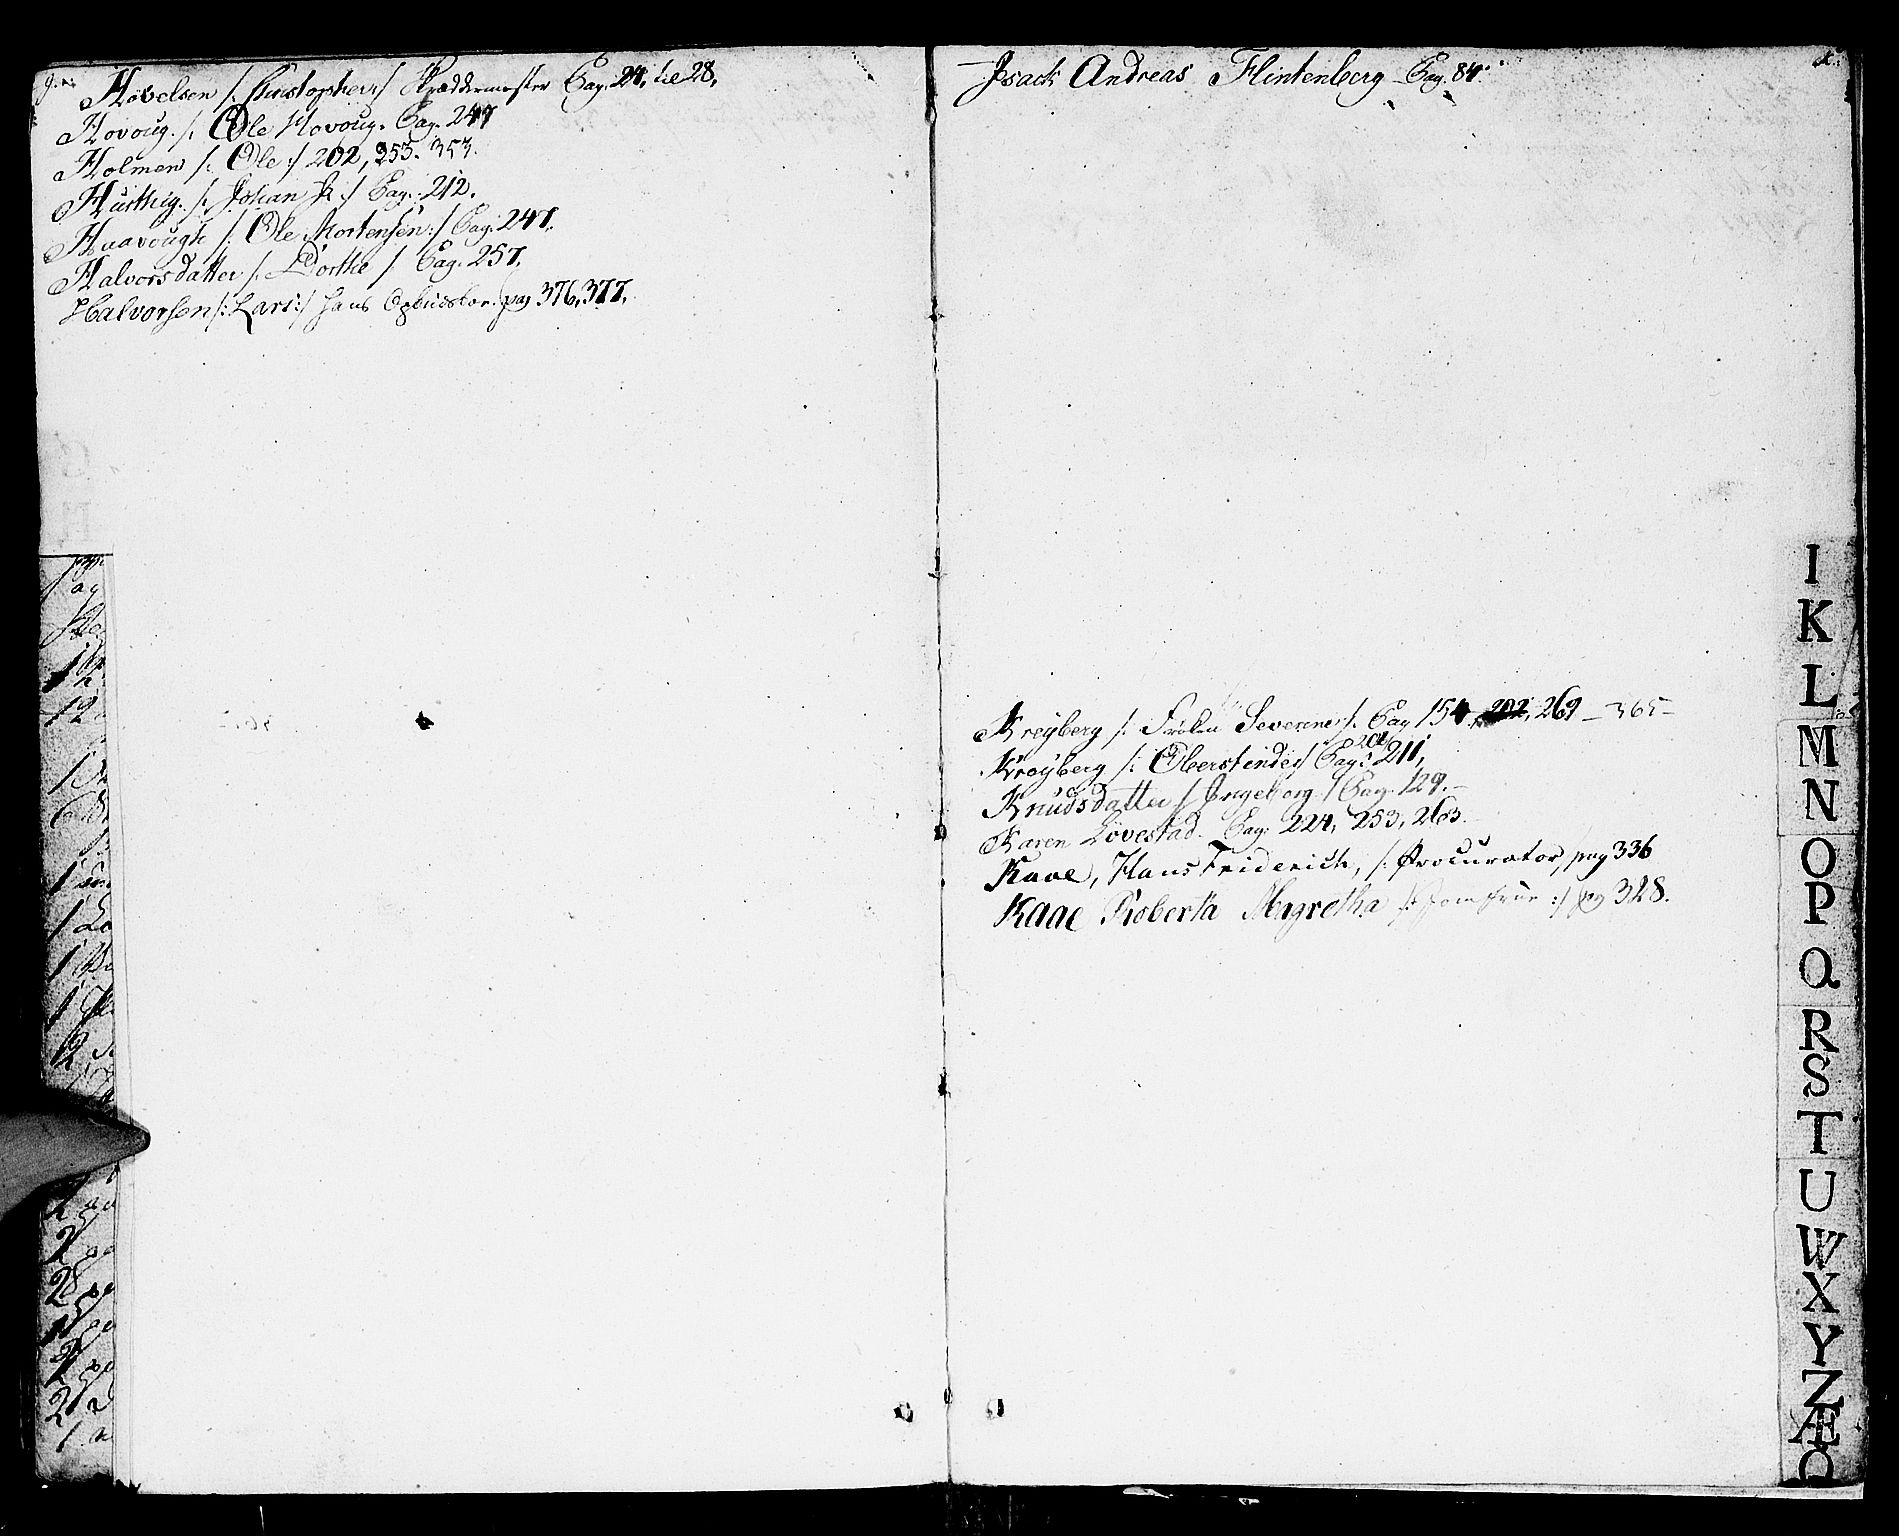 Hövelsen /: Christopher :/ Skræddermester Pag. 24, til 28,
Hovoug. /: Ole Hovoug. Pag. 247
Holmen /: Ole :/ 202, 253. 353.
Hüsthig. /: Johan :/ Pag. 212.
/: Ole Mortensen :/ Pag. 247.
Halvorsdatter /: Dorthe :/ Pag. 257.
Halvorsen /: Lars :/ hans Opbudsboe. pag 376, 377.
Isack Andreas Flintenberg Pag. 84.
Kreÿberg /: Frøken Severine :/ Pag 154, 202, 269 - 365 -
Kreÿberg /: Oberstinde :/ Pag: 201 211,
Knüdsdatter /: Ingeborg :/ Pag. 129. -
Karen Lövestad. Pag: 224, 253, 263.
Kaae, Hans Friderich, /: Procurator, pag 336
Kaae Roberta Magretha /: Jomfrue :/ pag 328.
I
K
L
M
N
O
P
Q
R
S
T
U
W
X
Y
Z
Æ
Ø